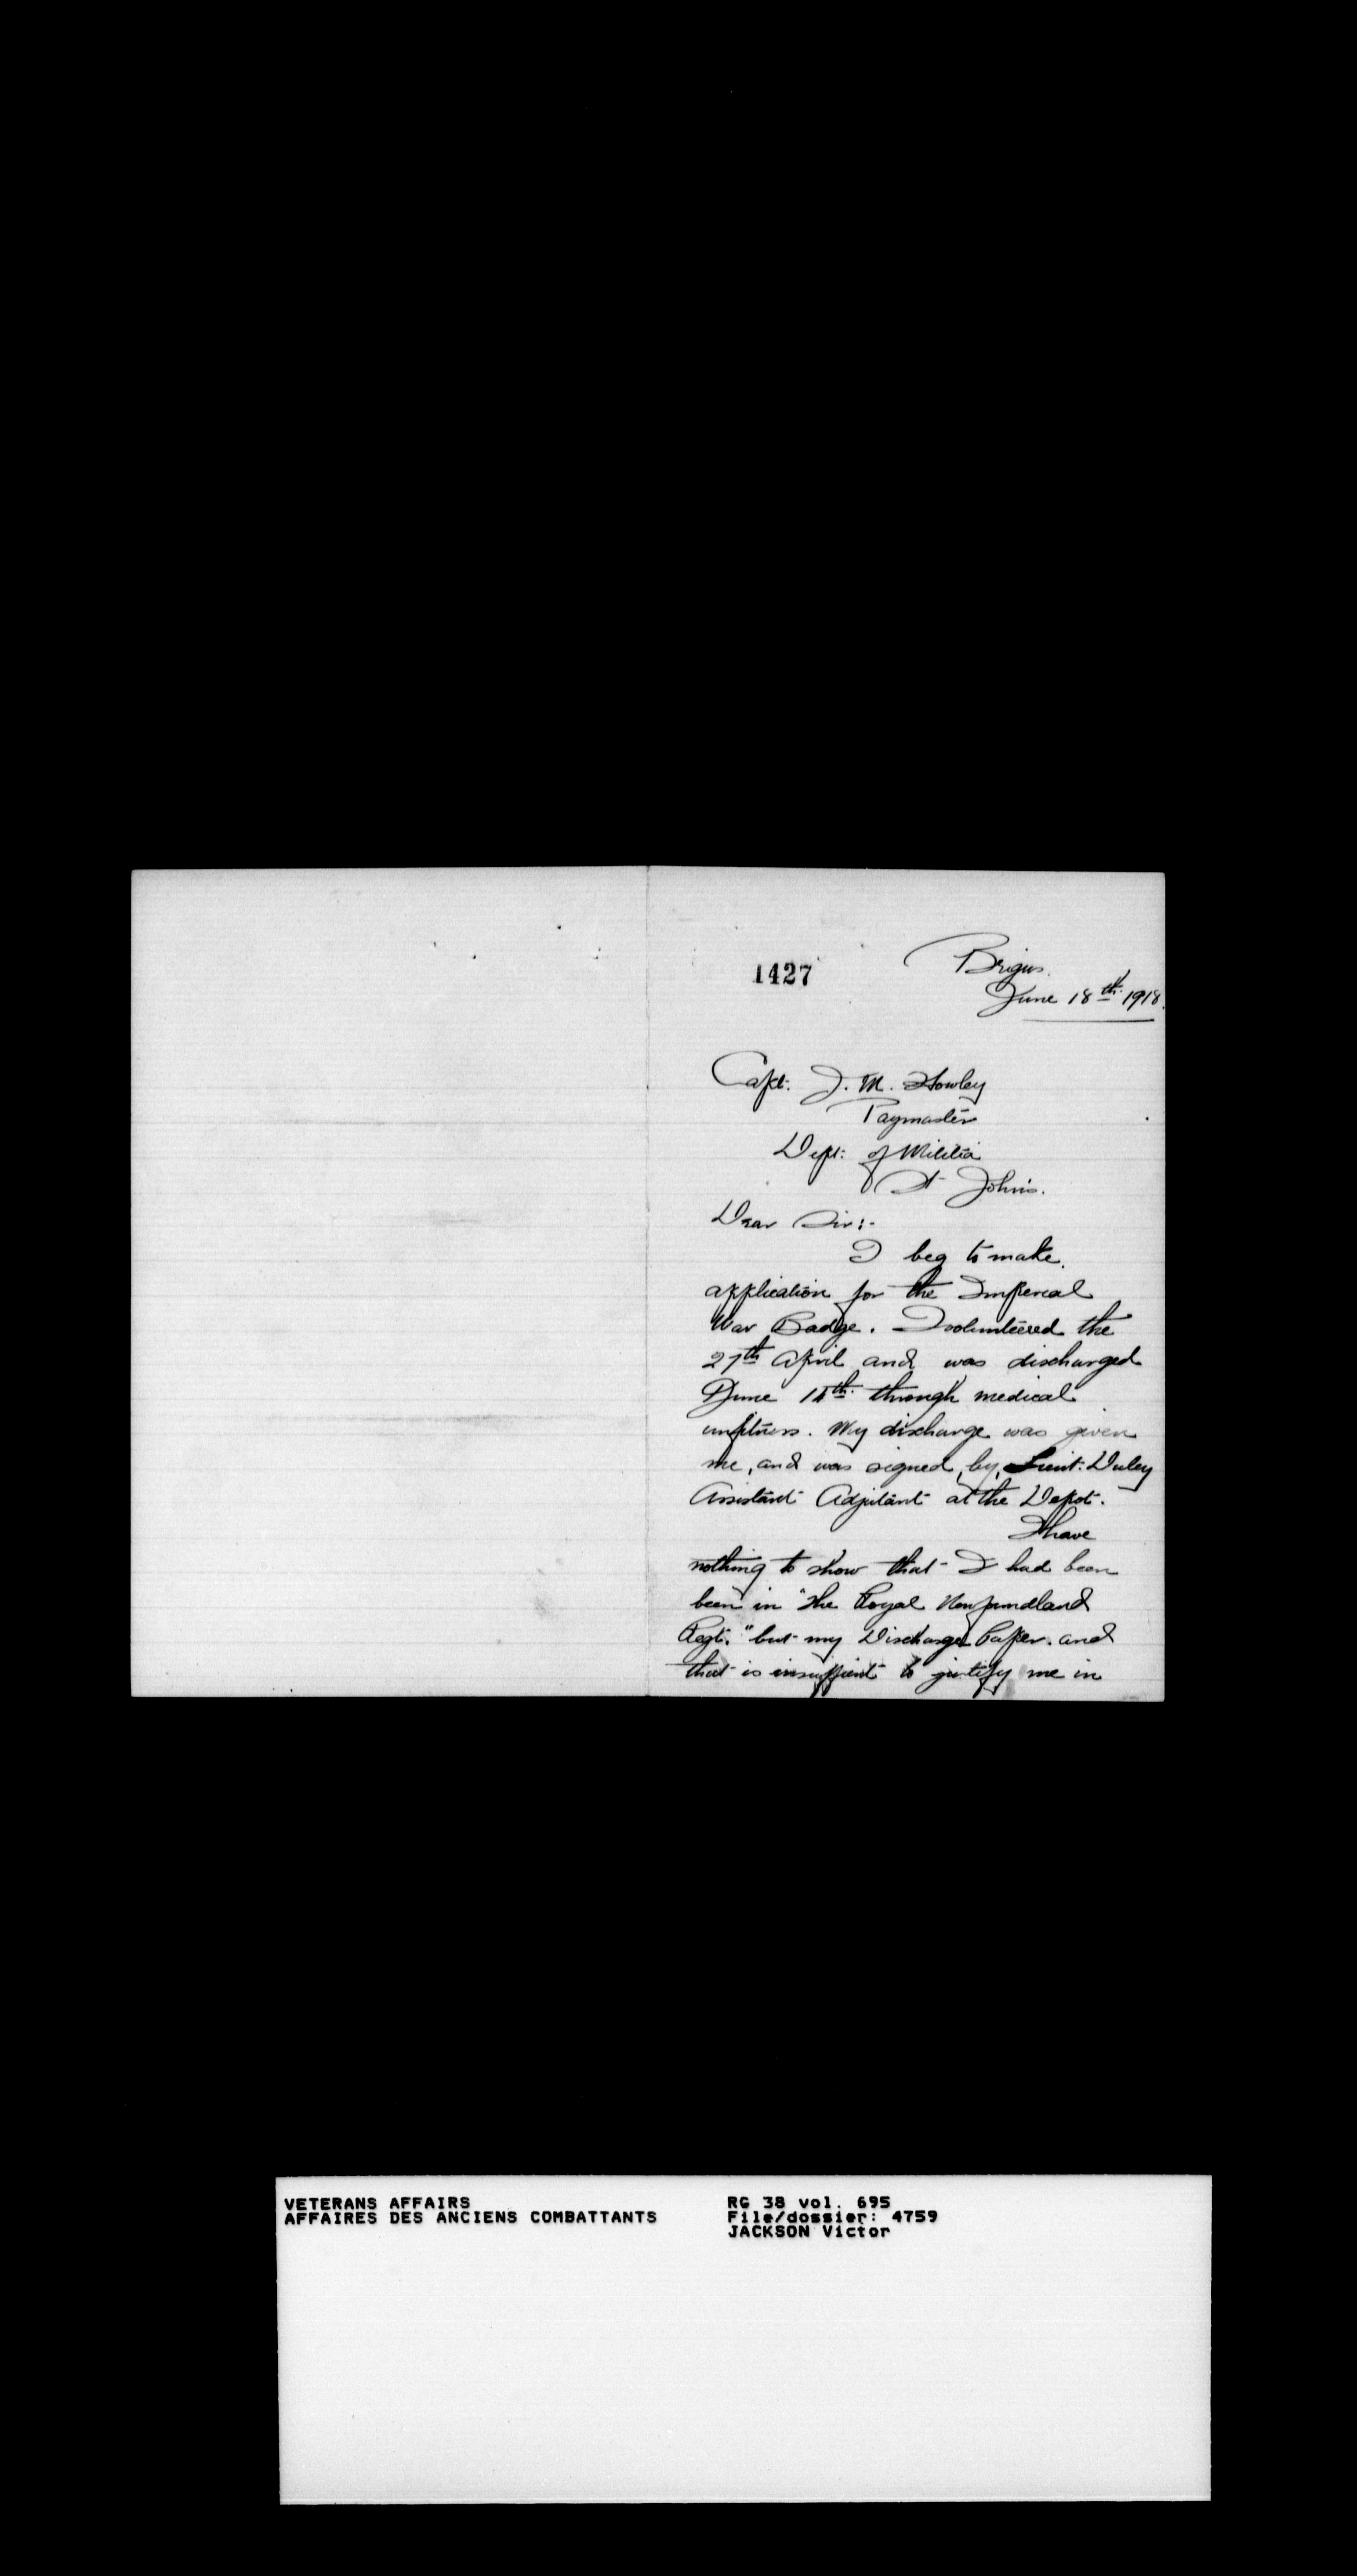 1427
Brigus.
June 18th 1918.
Capt. J. M. Howley
Paymaster
Dept: of Militia
St Johns.
Dear Sir:-
I beg to make
application for the Imperial
War Badge. I volunteered the
27th April and was discharged
June 14th through medical
unfitness. My discharge was given
me, and was signed, by, Lieut: Duley
Assistant Adjutant at the Depot.
I have
nothing to show that I had been
been in "the Royal Newfoundland
Regt." but my Discharge Paper. and
that is insuffient to justify me in
VETERANS AFFAIRS
AFFAIRES DES ANCIENS COMBATTANTS
RG 38 vol. 695
File/dossier: 4759
JACKSON Victor